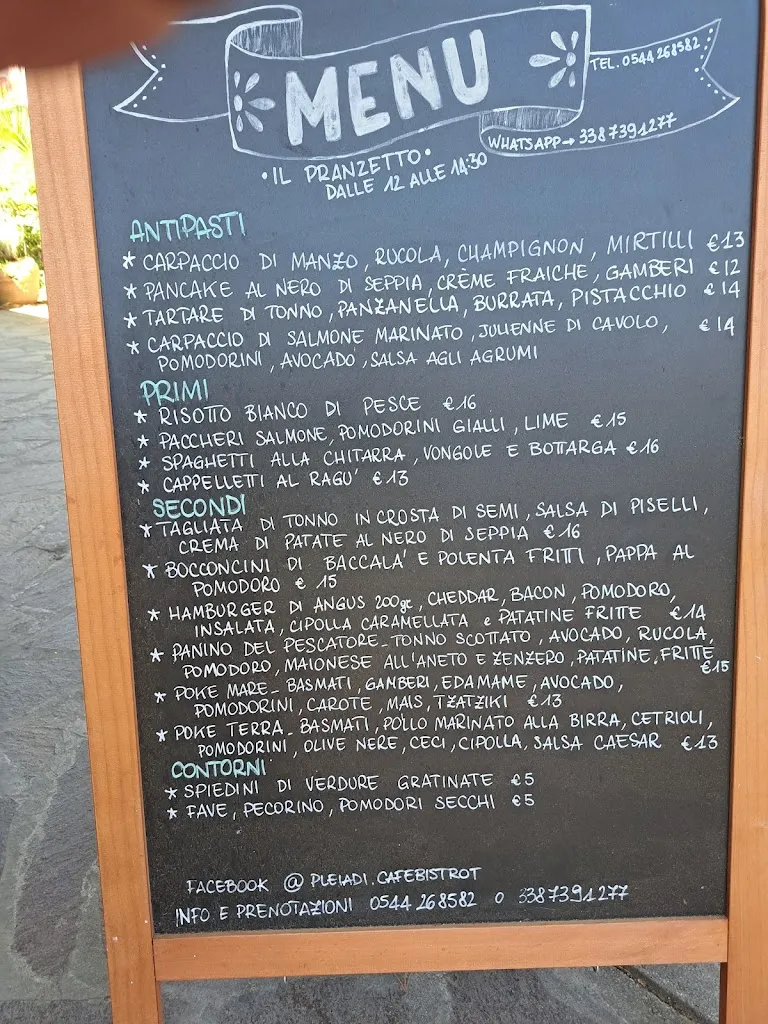 MENU
TEL. 0544 268582
WHATSAPP→ 3387391277
• IL PRANZETTO •
DALLE 12 ALLE 14:30
ANTIPASTI
* CARPACCIO DI MANZO, RUCOLA, CHAMPIGNON, MIRTILLI €13
* PANCAKE AL NERO DI SEPPIA, CRÈME FRAICHE, GAMBERI €12
* TARTARE DI TONNO, PANZANELLA, BURRATA, PISTACCHIO €14
* CARPACCIO DI SALMONE MARINATO, JULIENNE DI CAVOLO, €14
POMODORINI, AVOCADO, SALSA AGLI AGRUMI
PRIMI
* RISOTTO BIANCO DI PESCE €16
* PACCHERI SALMONE, POMODORINI GIALLI, LIME €15
* SPAGHETTI ALLA CHITARRA, VONGOLE E BOTTARGA €16
* CAPPELLETTI AL RAGU' €13
SECONDI
* TAGLIATA DI TONNO IN CROSTA DI SEMI, SALSA DI PISELLI,
CREMA DI PATATE AL NERO DI SEPPIA €16
* BOCCONCINI DI BACCALA' E POLENTA FRITTI, PAPPA AL
POMODORO € 15
* HAMBURGER DI ANGUS 200gr, CHEDDAR, BACON, POMODORO,
INSALATA, CIPOLLA CARAMELLATA e PATATINE FRITTE €14
* PANINO DEL PESCATORE_TONNO SCOTTATO, AVOCADO, RUCOLA,
POMODORO, MAIONESE ALL'ANETO E ZENZERO, PATATINE, FRITTE
€15
* POKE MARE_ BASMATI, GAMBERI, EDAMAME, AVOCADO,
POMODORINI, CAROTE, MAIS, TZATZIKI €13
* POKE TERRA_ BASMATI, POLLO MARINATO ALLA BIRRA, CETRIOLI,
POMODORINI, OLIVE NERE, CECI, CIPOLLA, SALSA CAESAR €13
CONTORNI
* SPIEDINI DI VERDURE GRATINATE €5
* FAVE, PECORINO, POMODORI SECCHI €5
FACEBOOK @ PLEIADI.CAFEBISTROT
INFO E PRENOTAZIONI 0544 268582 O 3387391277